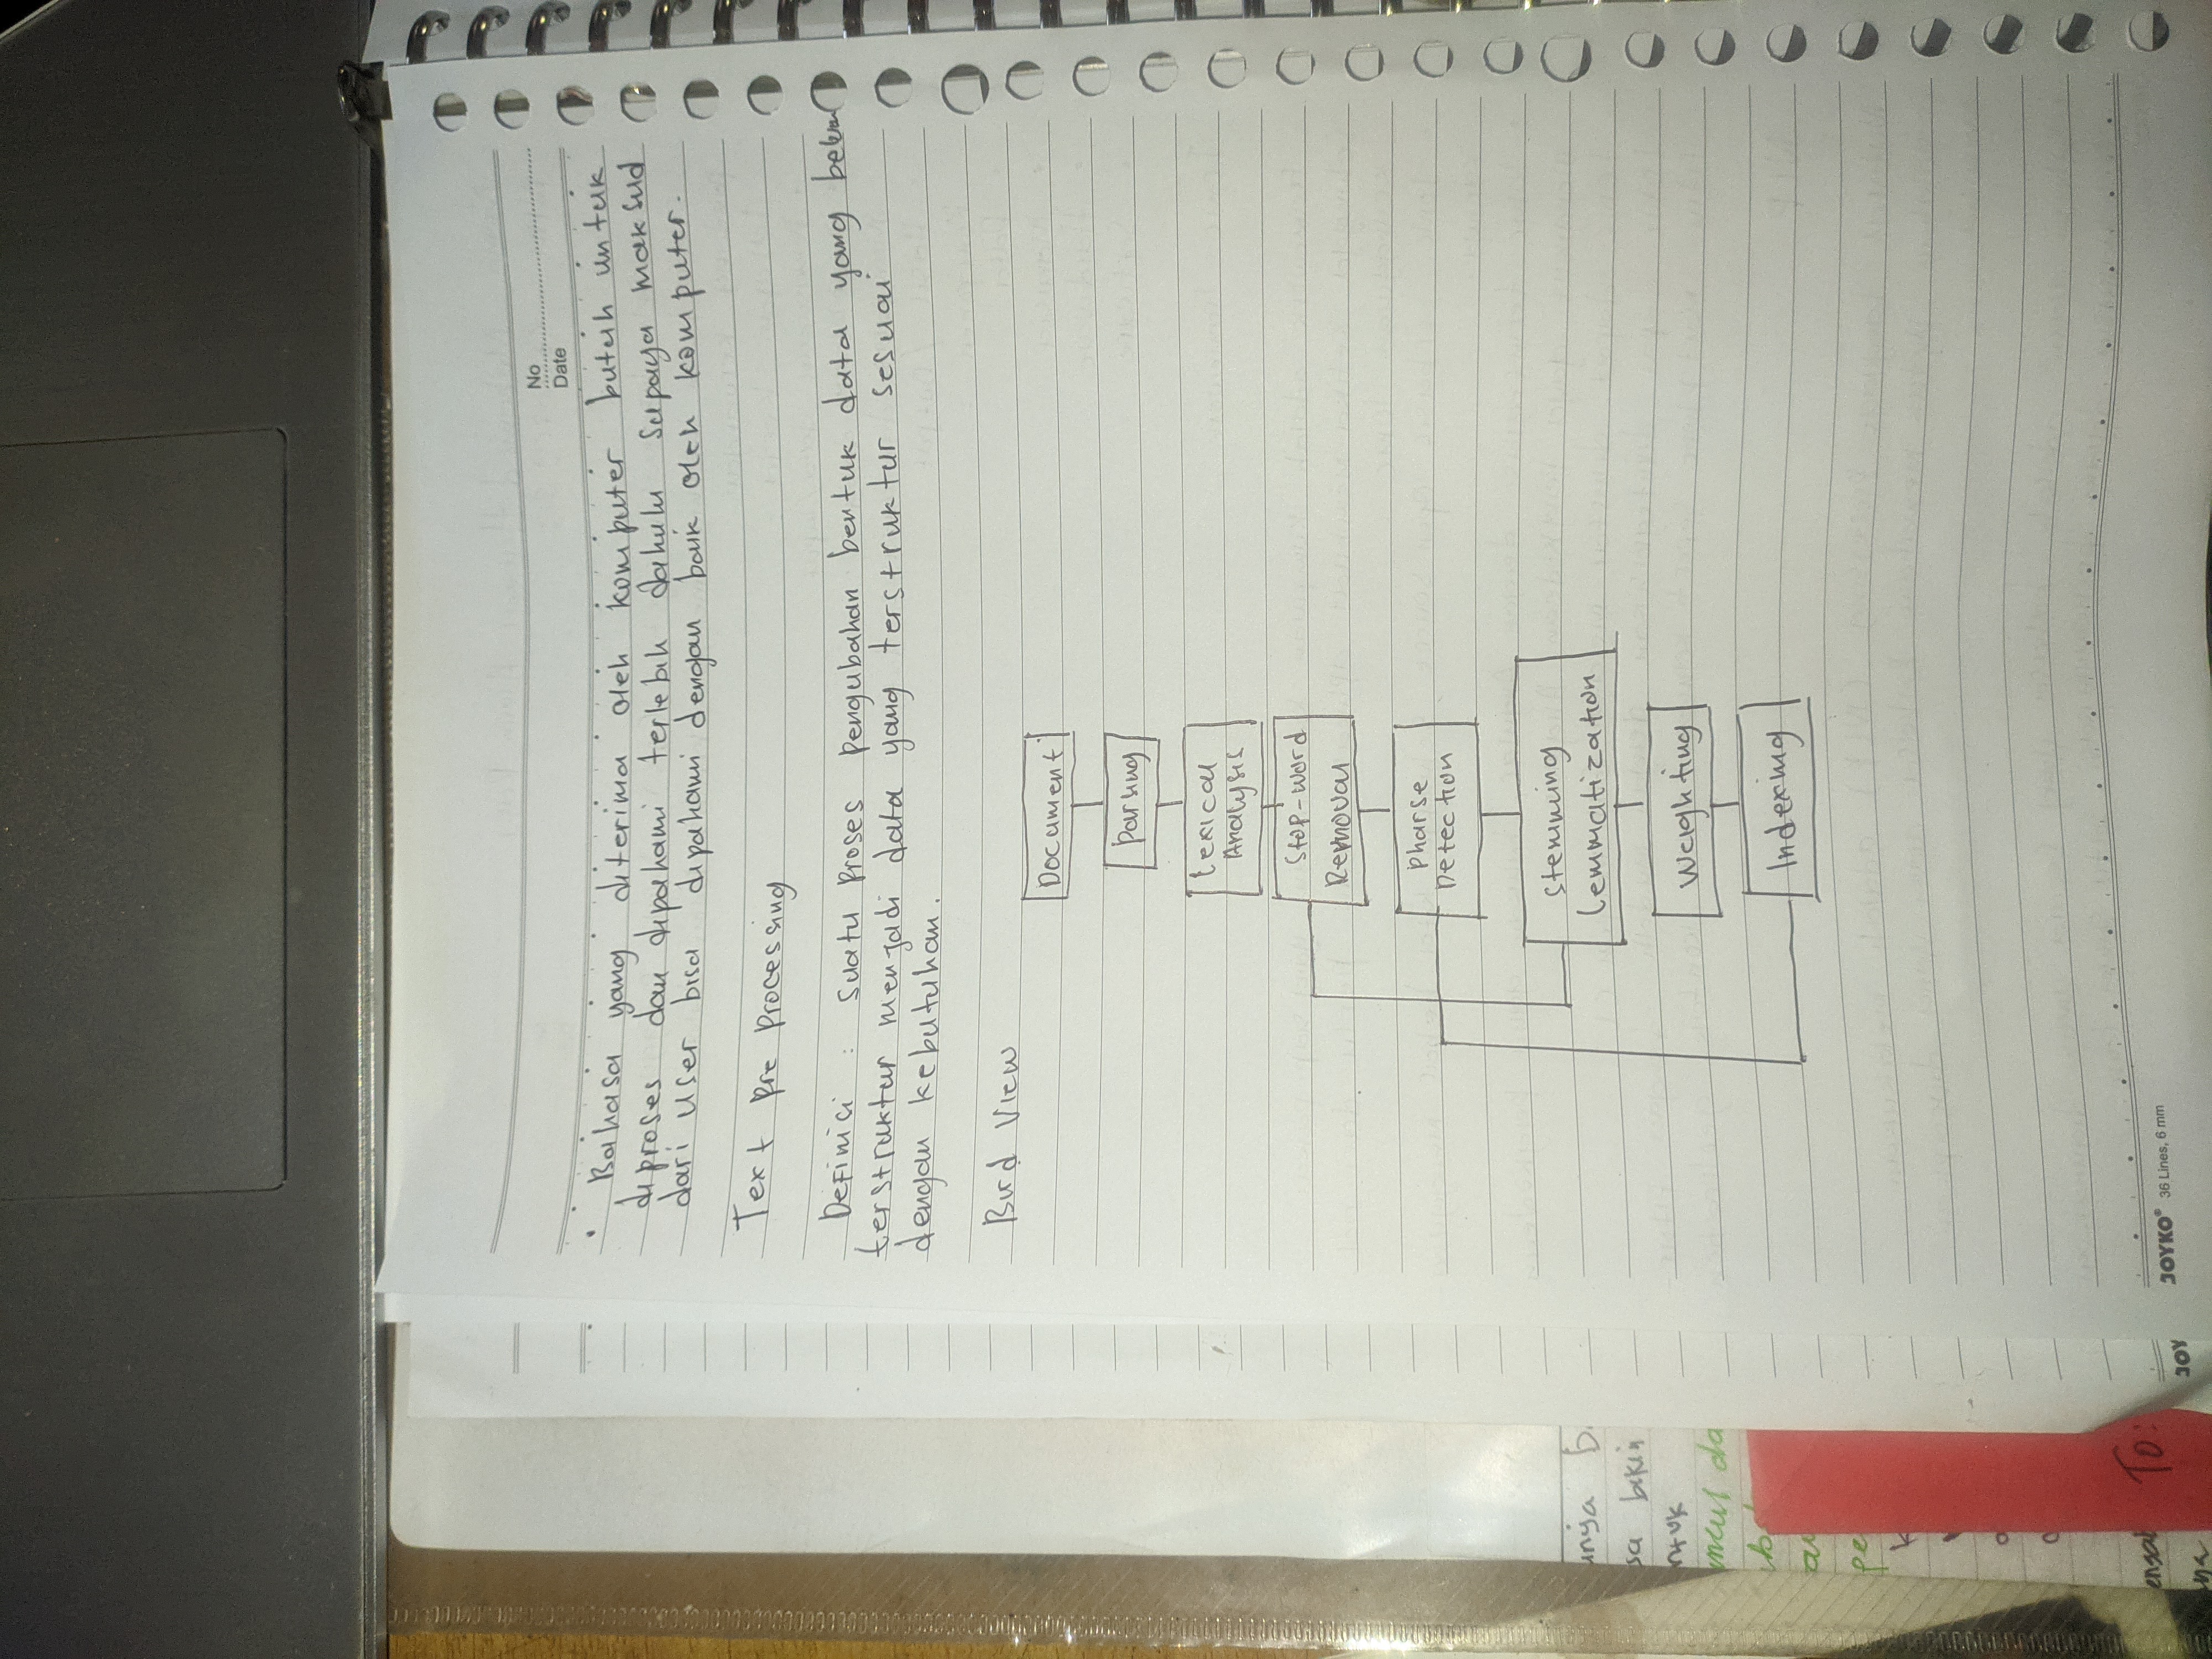 No
Date
• Bahasa yang diterima oleh komputer butuh untuk
diproses dan dipahami terlebih dahulu supaya maksud
dari user bisa dipahami dengan baik oleh komputer.
Text Pre Processing
Definisi : suatu proses pengubahan bentuk data yang belum
terstruktur menjadi data yang terstruktur sesuai
dengan kebutuhan.
Bird View
Document
Parsing
Lexical
Analysis
Stop-word
Removal
Pharse
Detection
Stemming
Lemmatization
Weighting
Indexing
unya b
sa bikin
ntuk
uncul da
pe
To:
JOY
JOYKO® 36 Lines, 6 mm